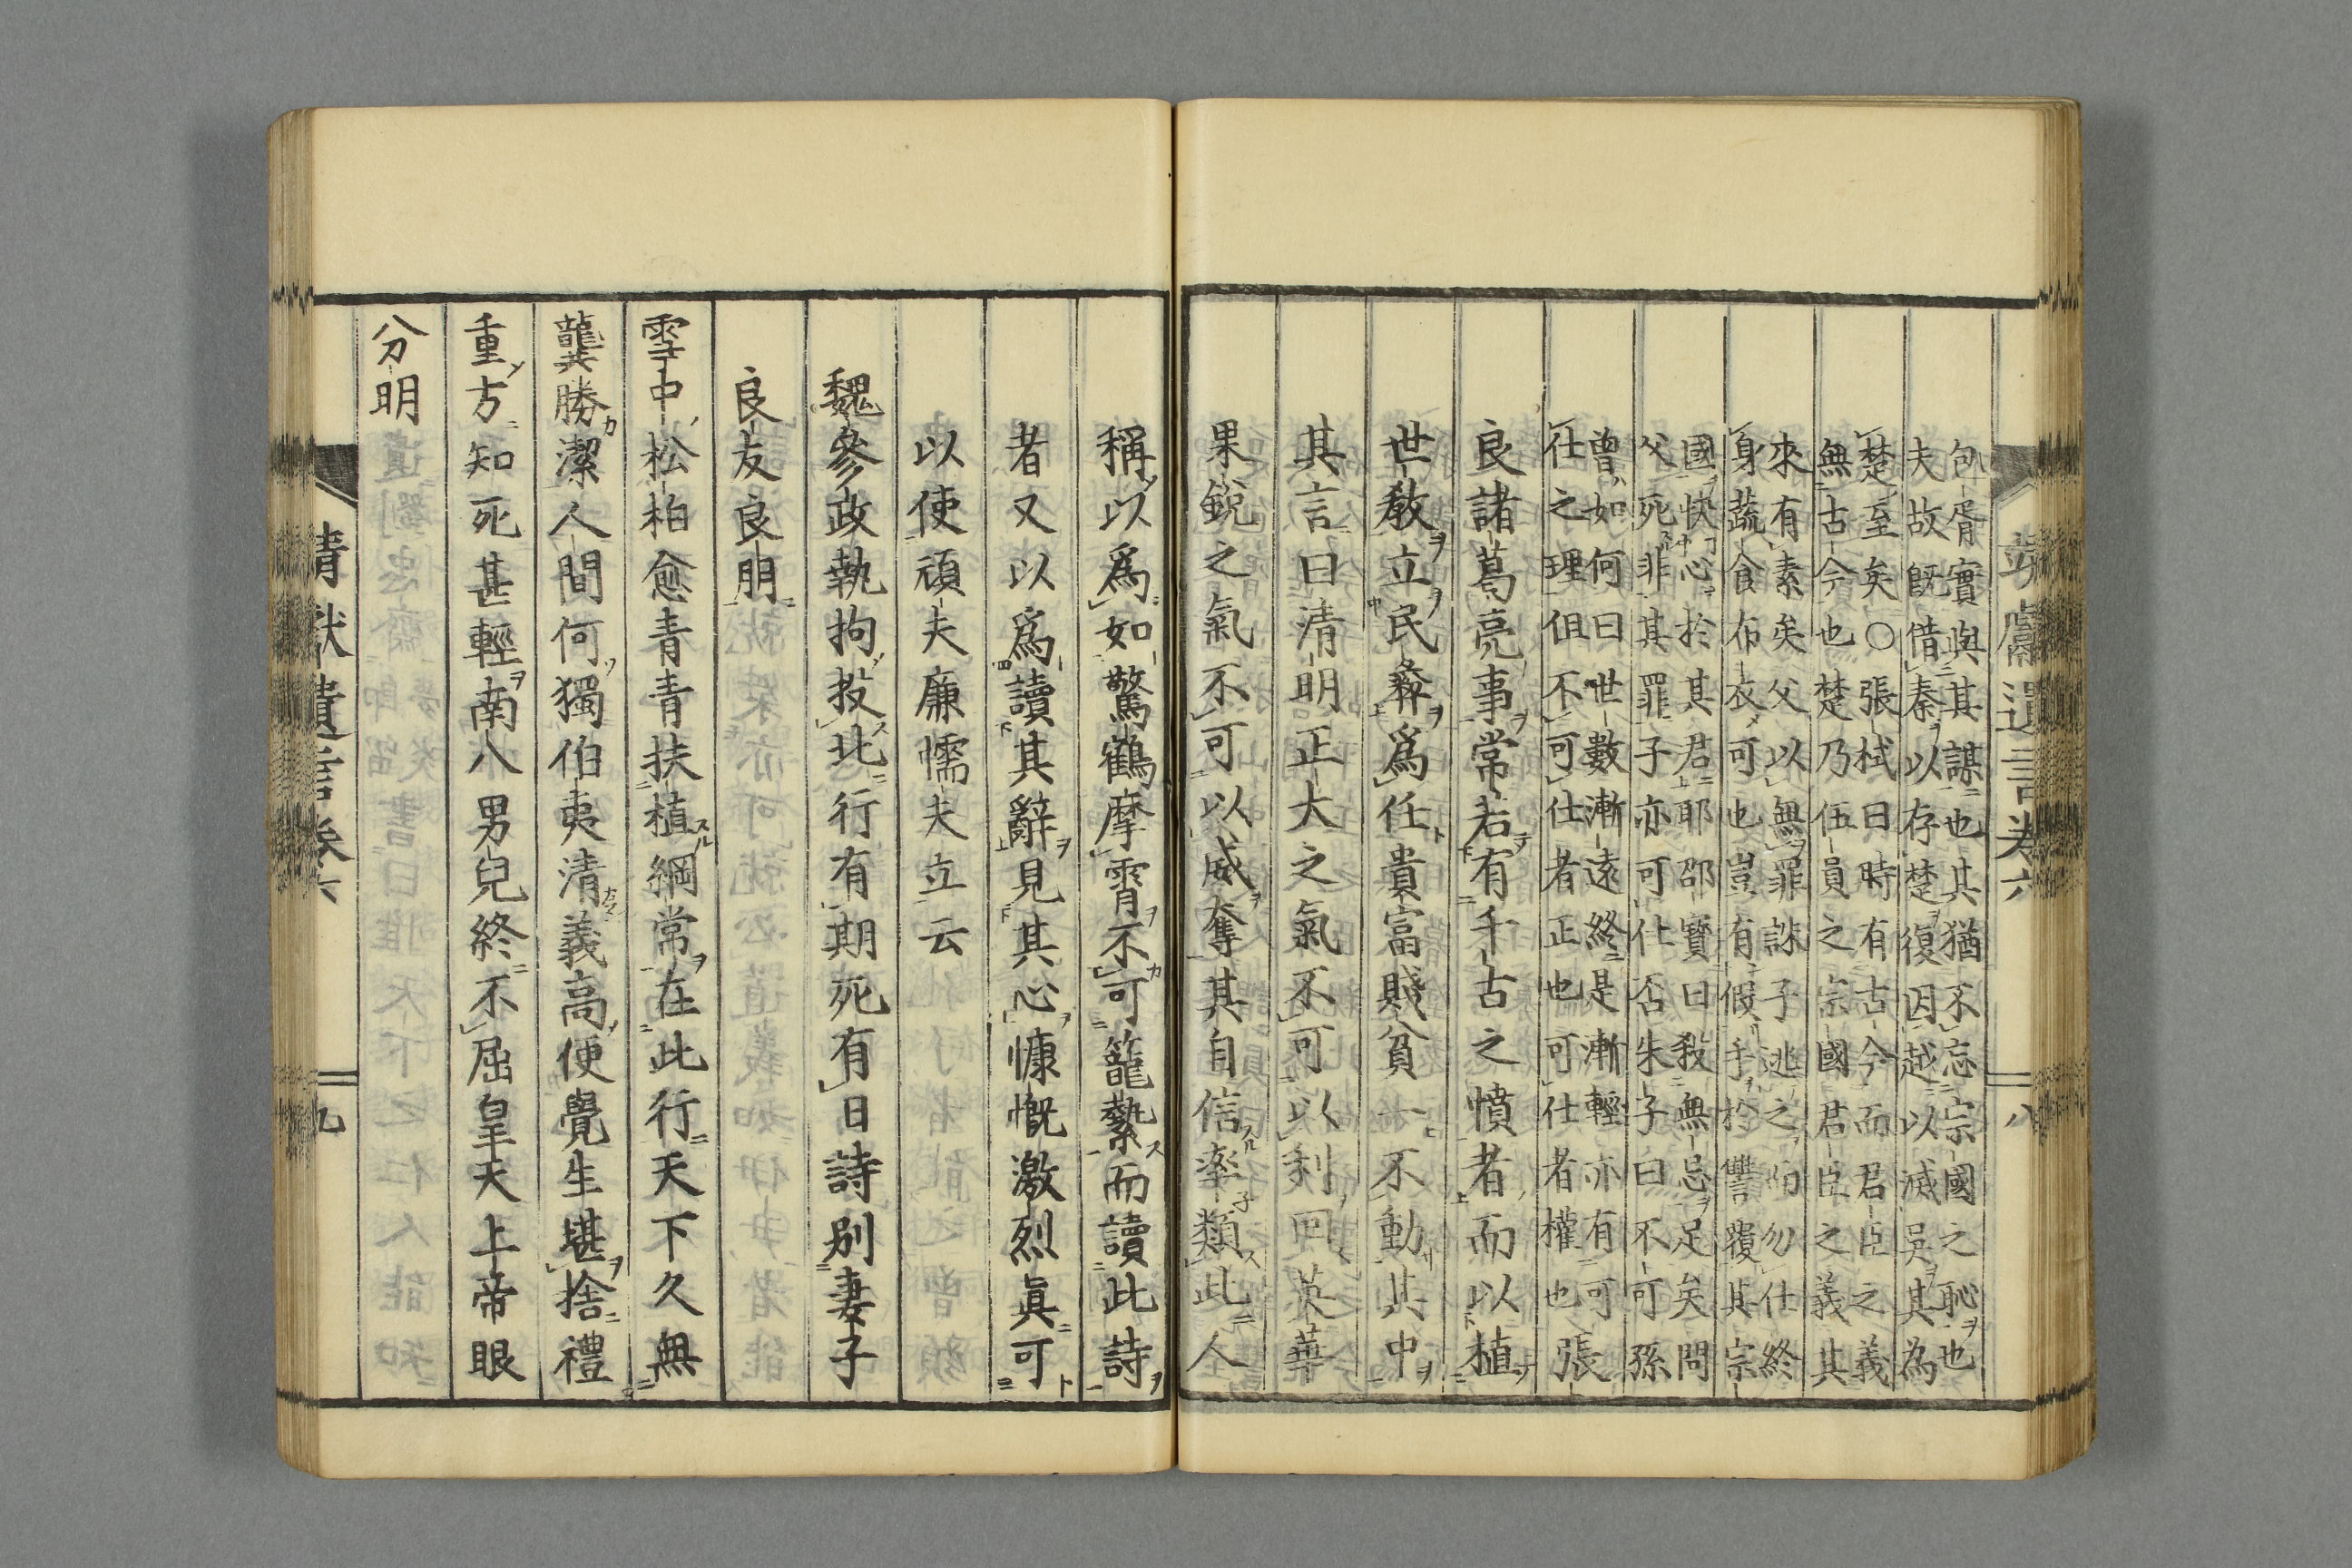 靖獻遺言卷六
八
包胥實與其謀也其猶不忘宗國之恥也
夫故既借秦以存楚復因越以滅吳其為
楚至矣○張栻曰時有古今而君臣之義
無古今也楚乃伍員之宗國君臣之義其
來有素矣父以無罪誅子逃之而勿仕終
身蔬食布衣可也豈有假手於讐覆其宗
國快心於其君耶邵寶曰殺無忌足矣問
父死非其罪子亦可仕否朱子曰不可孫
曾如何曰世數漸遠終是漸輕亦有可
仕之理但不可仕者正也可仕者權也
張
良諸葛亮事常若有千古之憤者而以植
世教立民彝爲任貴富賤貧一不動其中
其言曰清明正大之氣不可以刹回英華
果銳之氣不可以威奪其自信率類此人
稱以爲如驚鶴摩霄不可籠縶而讀此詩
者又以爲讀其辭見其心慷慨激烈眞可
以使頑夫廉懦夫立云
魏參政執拘投北行有期死有日詩別妻子
良友良朋
雪中松柏愈青青扶植綱常在此行天下久無
龔勝潔人間何獨伯夷清義高便覺生堪捨禮
重方知死甚輕南八男兒終不屈皇天上帝眼
分明
靖獻遺言卷六
九